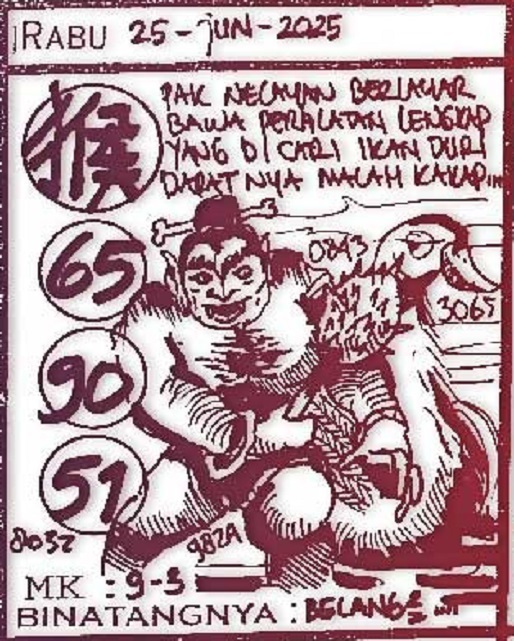 RABU 25-JUN-2025
猴
PAK NELAYAN BERLAYAR
BAWA PERALATAN LENGKAP
YANG DI CARI IKAN DURI
DAPAT NYA MALAH KAKAP...
65
0843
3065
90
51
8032
982A
MK : 9-3
BINATANGNYA : BELANG2...